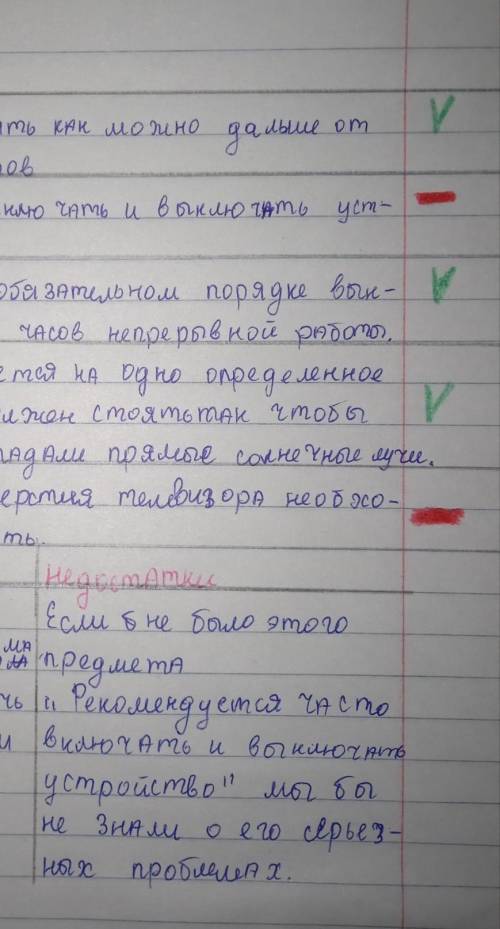 ать как можно дальше от
ров
ключать и выключать уст-
обязательном порядке вык-
часов непрерывной работы.
ется на одно определенное
лжен стоять так чтобы
падали прямые солнечные лучи.
ерстия телевизора необхо-
ть.
недостатки
Если б не было этого
ма
ла предмета
чь „ Рекомендуется часто
и включать и выключать
устройство" мы бы
не знали о его серьез-
ных проблемах.